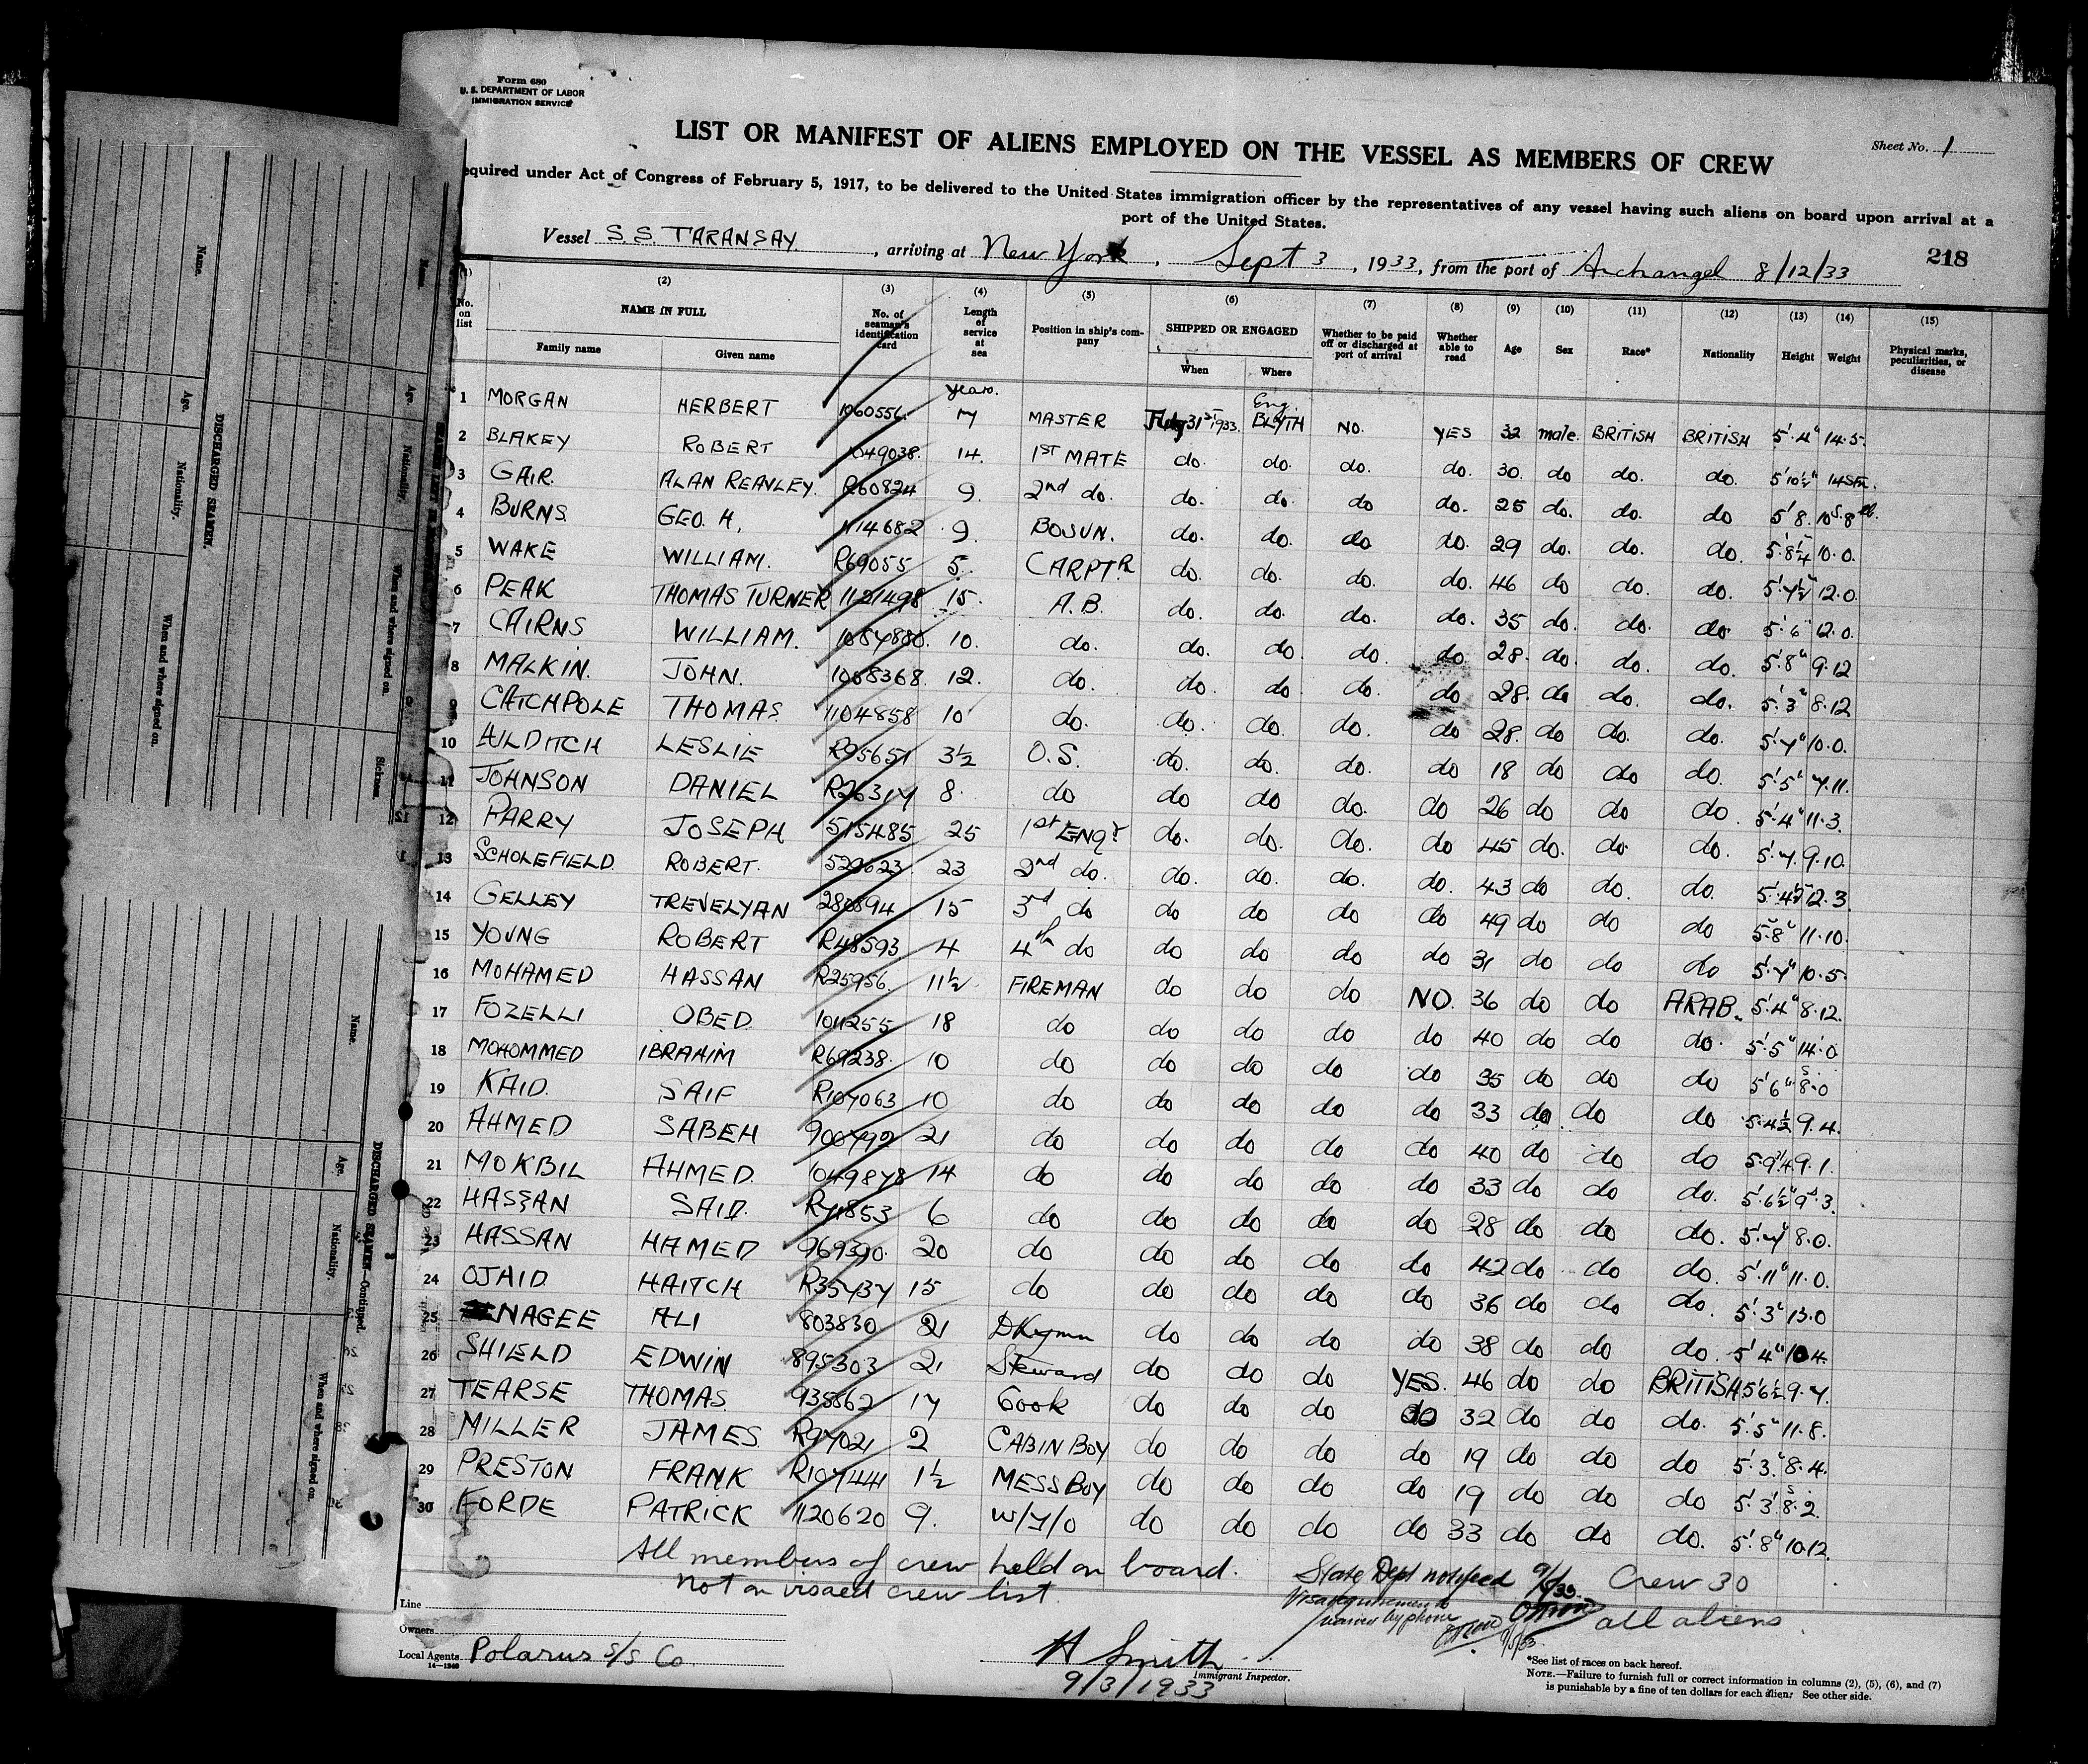 Form 680
U. S. DEPARTMENT OF LABOR
IMMIGRATION SERVICE
Sheet No. 1
LIST OR MANIFEST OF ALIENS EMPLOYED ON THE VESSEL AS MEMBERS OF CREW
equired under Act of Congress of February 5, 1917, to be delivered to the United States immigration officer by the representatives of any vessel having such aliens on board upon arrival at a
port of the United States.
Vessel S.S. TARANSAY, arriving at New York, Sept 3, 1933, from the port of Archangel 8/12/33
218
(1) (2) (3) (4) (5) (6) (7) (8) (9) (10) (11) (12) (13) (14) (15)
No. on list NAME IN FULL Family name Given name No. of seaman's identification card Length of service at sea Position in ship's company SHIPPED OR ENGAGED When Where Whether to be paid off or discharged at port of arrival Whether able to read Age Sex Race* Nationality Height Weight Physical marks, peculiarities, or disease
years. Eng.
1 MORGAN HERBERT 1060556 7 MASTER July 31st 1933. BLYTH NO. YES 32 male. BRITISH BRITISH 5'.4" 14.5.
2 BLAKEY ROBERT 1049038. 14. 1ST MATE do. do. do. do. 30. do do. do. 5'10½"
3 GAIR. ALAN REAVLEY. R60824 9. 2nd do. do. do. do do. 25 do. do. do 5'8.
4 BURNS. GEO. H. 1114682 9. BOSUN. do. do. do do. 29 do. do. do. 10.0.
5 WAKE WILLIAM. R69055 5. CARPTR do. do. do. do. 46 do do. do. 5'.7½" 12.0.
6 PEAK THOMAS TURNER 1121498 15. A.B. do. do. do. do. 35 do. do. do. 5'.6" 12.0.
7 CAIRNS WILLIAM. 10. do. do. do. do. do 28. do. do. do. 5'.8" 9.12
8 MALKIN. JOHN. 1068368. 12. do. do. do. do. do 28. do do. do. 5'.3" 8.12
9 CATCHPOLE THOMAS 1104858 10 do. do. do. do. do 28. do do. do. 5'.7" 10.0.
10 AILDITCH LESLIE R95651 3½ O.S. do. do. do. do 18 do do do. 5'.5" 7.11.
11 JOHNSON DANIEL R26317 8. do do do do. do 26 do do do. 5'.4" 11.3.
12 PARRY JOSEPH 515485 25 1st ENGR do. do. do. do 45 do. do. do. 5'.7. 9.10.
13 SCHOLEFIELD. ROBERT. 529623. 23 2nd do. do. do. do. do. 43 do do. do. 12.3.
14 GELLEY TREVELYAN 280894 15 3rd do do do do do 49 do do do 5.8" 11.10.
15 YOUNG ROBERT R48593 4 4th do do do do do 31 do do do 5'.7" 10.5.
16 MOHAMED HASSAN R25956. 11½ FIREMAN do do do NO. 36 do do ARAB. 5'.4" 8.12.
17 FOZELLI OBED. 1011255 18 do do do do do 40 do do do. 5'.5" 14.0
18 MOHOMMED IBRAHIM R69238. 10 do do do do do 35 do do do 5'6" 8.0
19 KAID. SAIF R107063 10 do do do do do 33 do do do 5.4½ 9.4.
20 AHMED SABEH 900792 21 do do do do do 40 do do do 9.1.
21 MOKBIL AHMED. 1049878 14 do do do do do 33 do do do. 5'.6½" 9.3.
22 HASSAN SAID. R71853 6 do do do do do 28 do do do. 5'.7" 8.0.
23 HASSAN HAMED 969390. 20 do do do do do 42 do do do. 5'.11" 11.0.
24 OJAID HAITCH R35737 15 do do do do do 36 do do do. 5'.3" 13.0
25 NAGEE ALI 803830 21 DKymn do do do do 38 do do do. 5'4" 10.4.
26 SHIELD EDWIN 895303 21 Steward do do do YES. 46 do do BRITISH 5'6½ 9.7.
27 TEARSE THOMAS. 935862 17 Cook do do do do 32 do do do. 5'.5" 11.8.
28 MILLER JAMES. R97021 2 CABIN BOY do do do do 19 do do do 5'.3." 8.4.
29 PRESTON FRANK R107441 1½ MESS BOY do do do do 19 do do do 5'.3'. 8.2.
30 FORDE PATRICK 1120620 9. W/Y/O do do do do 33 do do do. 5'.8" 10.12.
All members of crew held on board.
not on visaed crew list.
State Dept notified
Visa requirements
waived by phone
9/5/33.
Crew 30
all aliens.
Line
Owners
Local Agents Polarus S/S Co
14—1240
H Smith
Immigrant Inspector.
9/3/1933
*See list of races on back hereof.
NOTE.—Failure to furnish full or correct information in columns (2), (5), (6), and (7)
is punishable by a fine of ten dollars for each alien. See other side.
DISCHARGED SEAMEN.
Name.
Age.
Nationality.
When and where signed on.
Name.
Age.
Nationality.
When and where signed on.
Sickness.
DISCHARGED SEAMEN—Continued.
Name.
Age.
Nationality.
When and where signed on.